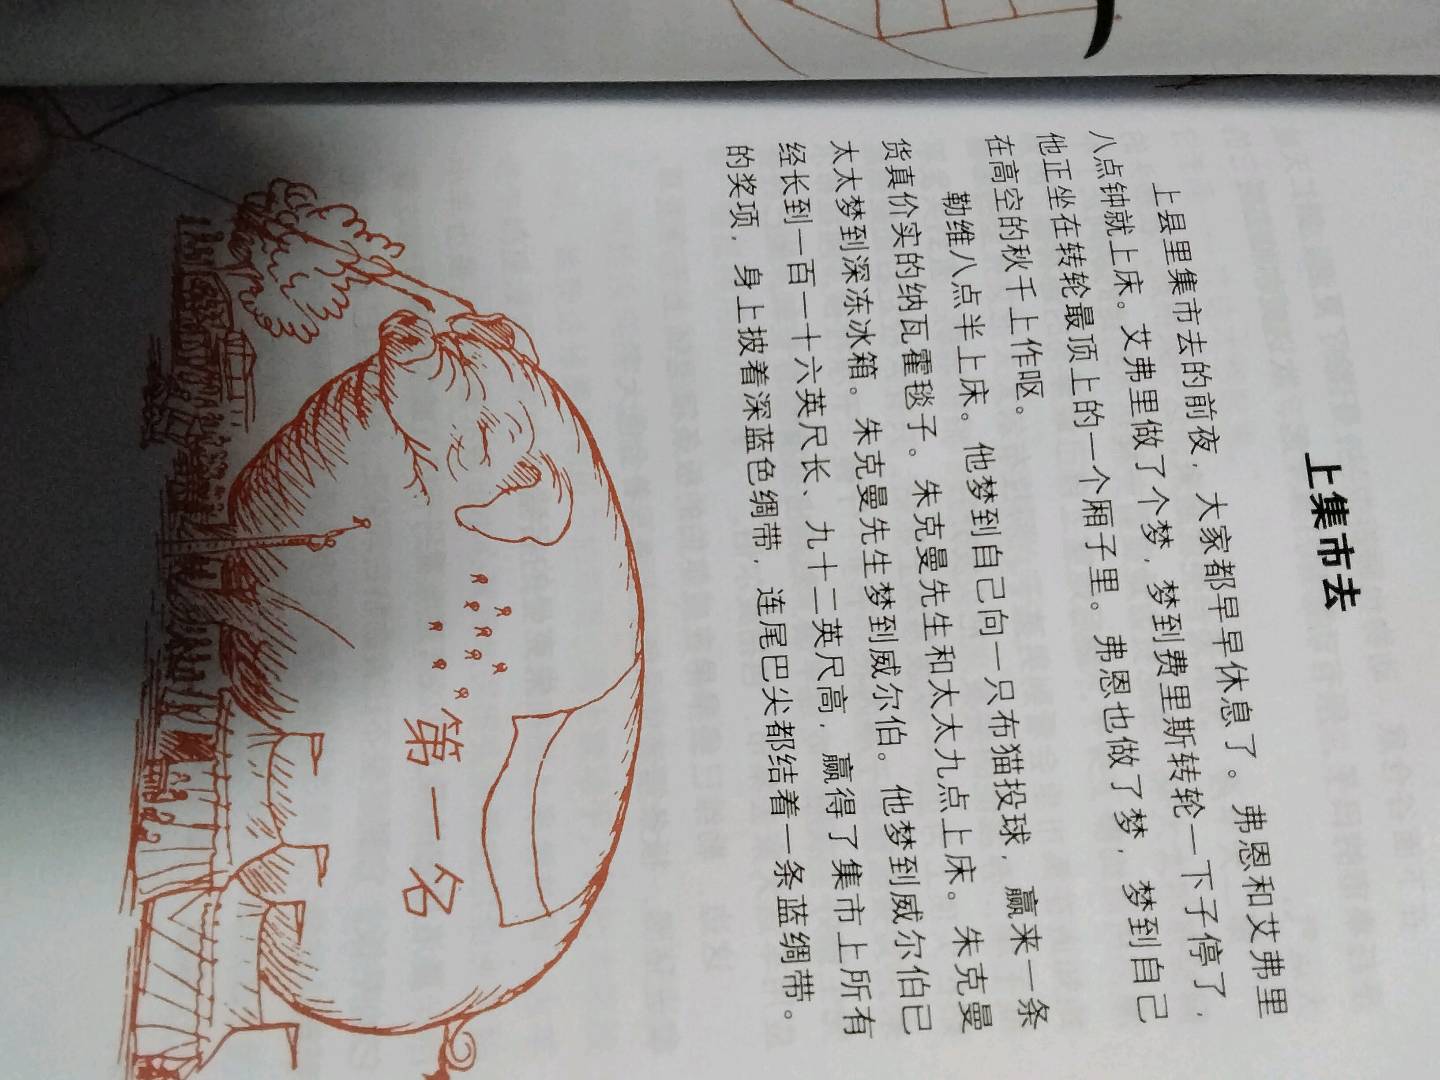 上集市去
上县里集市去的前夜，大家都早早休息了。弗恩和艾弗里
八点钟就上床。艾弗里做了个梦，梦到费里斯转轮一下子停了，
他正坐在转轮最顶上的一个厢子里。弗恩也做了梦，梦到自己
在高空的秋千上作呕。
勒维八点半上床。他梦到自己向一只布猫投球，赢来一条
货真价实的纳瓦霍毯子。朱克曼先生和太太九点上床。朱克曼
太太梦到深冻冰箱。朱克曼先生梦到威尔伯。他梦到威尔伯已
经长到一百一十六英尺长、九十二英尺高，赢得了集市上所有
的奖项，身上披着深蓝色绸带，连尾巴尖都结着一条蓝绸带。
第一名